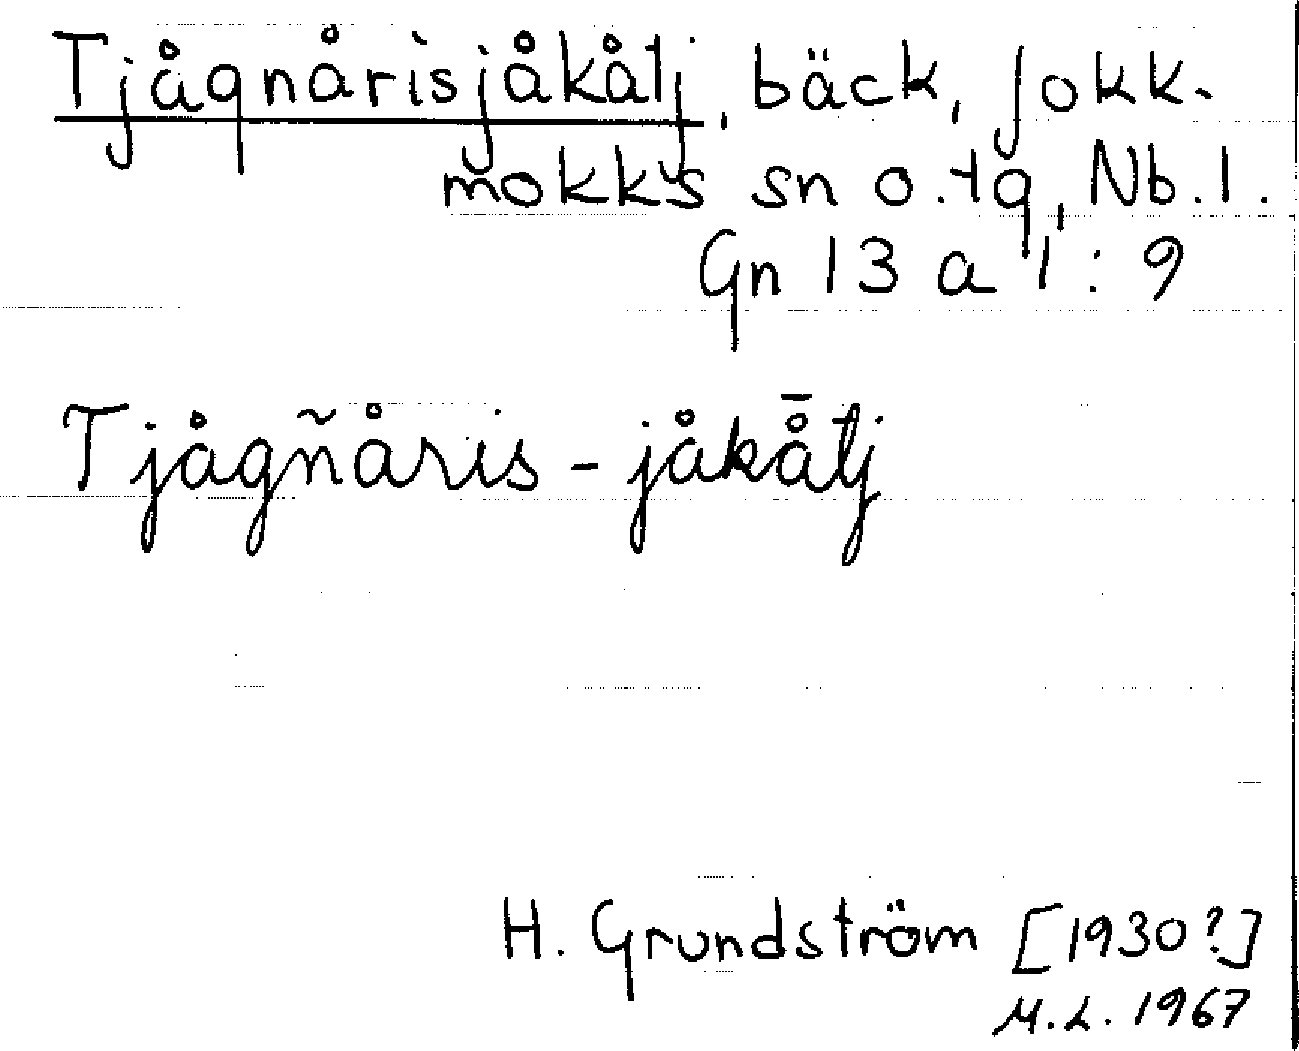 Tjågnårisjåkåtj, bäck, Jokk-
mokks sn o. tg, Nb. l.
Gn 13 a 1 : 9
Tjågñåris - jåkå̄tj
H. Grundström [1930?]
M.L. 1967